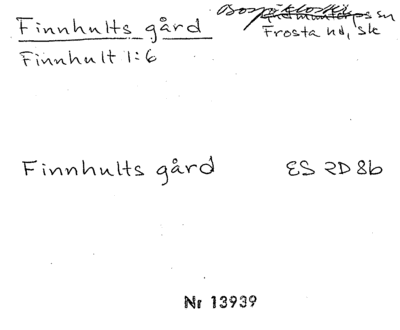 Finnhults gård
Bosjökloster sn
Frosta hd, Sk
Finnhult 1:6
Finnhults gård ES 2D 8b
Nr 13939